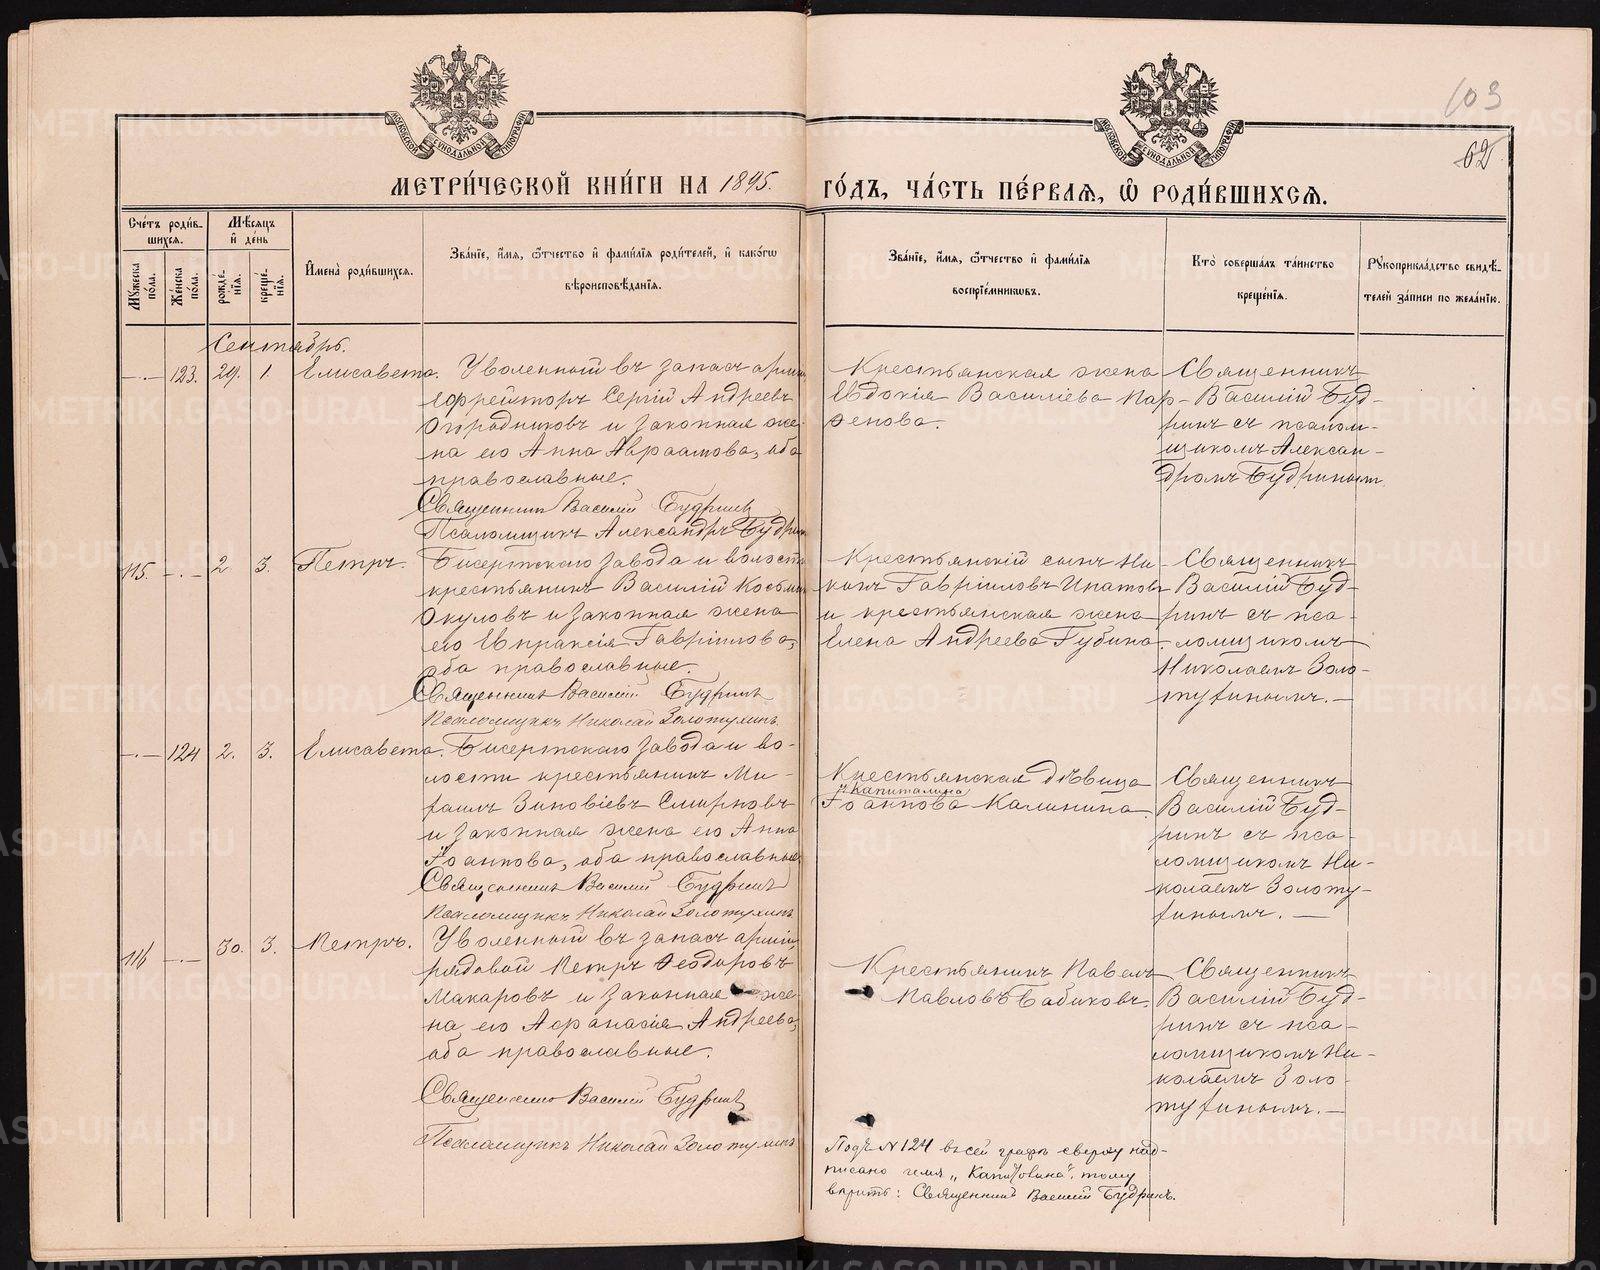 103
62
МОСКОВСКОЙ СѴНОДАЛЬНОЙ ТИПОГРАФІИ
МОСКОВСКОЙ СѴНОДАЛЬНОЙ ТИПОГРАФІИ
МЕТРИ́ЧЕСКОЙ КНИ́ГИ НА 1895. ГО́ДЪ, ЧА́СТЬ ПЕ́РВАЯ, Ѡ РОДИ́ВШИХСЯ.
Сче́тъ роди́в-
шихся.
Мꙋжеска по́ла.
Же́нска по́ла.
Мѣ́сяцъ и҆ де́нь
рожде́нїя.
креще́нїя.
И҆мена̀ роди́вшихся.
Зва́нїе, и҆́мя, ѻ҆́тчество и҆ фами́лїя роди́телей, и҆ како́гѡ
вѣроисповѣ́данїя.
Зва́нїе, и҆́мя, ѻ҆́тчество и҆ фами́лїя
воспрїе́мникѡвъ.
Кто̀ соверша́лъ та́инство
креще́нїя.
Рꙋкоприкла́дство свидѣ́-
телей за́писи по жела́нїю.
Сентябрь.
—.— 123. 29. 1. Елисавета.
Уволенный въ запасъ арміи
ефрейторъ Сергій Андреевъ
Огородниковъ и законная же-
на его Анна Авраамова, оба
православные.
Священникъ Василій Будринъ
Псаломщикъ Александръ Будринъ
Крестьянская жена
Евдокія Василіева Пар-
ѳенова.
Священникъ
Василій Буд-
ринъ съ псалом-
щикомъ Алексан-
дромъ Будринымъ.
115. —.— 2. 3. Петръ.
Бисертскаго завода и волости
крестьянинъ Василій Косьмин
Окуловъ и законная жена
его Евпраксія Гавріилова,
оба православные.
Священникъ Василій Будринъ
Псаломщикъ Николай Золотухинъ.
Крестьянскій сынъ Ни-
конъ Гавріиловъ Ипатовъ
и крестьянская жена
Елена Андреева Губина.
Священникъ
Василій Буд-
ринъ съ пса-
ломщикомъ
Николаемъ Золо-
тухинымъ. —
—.— 124 2. 3. Елисавета.
Бисертскаго завода и во-
лости крестьянинъ Ми-
хаилъ Зиновіевъ Смирновъ
и законная жена его Анна
Іоаннова, оба православные.
Священникъ Василій Будринъ
Псаломщикъ Николай Золотухинъ
Крестьянская дѣвица
„Капиталина
Іоаннова Калинина.
Священникъ
Василій Буд-
ринъ съ пса-
ломщикомъ Ни-
колаемъ Золоту-
хинымъ. —
116 —.— 30. 3. Петръ.
Уволенный въ запасъ арміи,
рядовой Петръ Ѳеодоровъ
Макаровъ и законная же-
на его Аѳанасія Андреева,
оба православные.
Священникъ Василій Будринъ
Псаломщикъ Николай Золотухинъ
Крестьянинъ Павелъ
Павловъ Бабиковъ.
Священникъ
Василій Буд-
ринъ съ пса-
ломщикомъ Ни-
колаемъ Золо-
тухинымъ. —
Подъ № 124 въ сей графѣ сверху над-
писано имя „ тому
вѣрить: Священникъ Василій Будринъ.